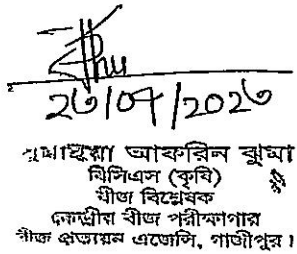 ২৩/০৭/২০২৩
আফরিন ঝুমা
বিসিএস (কৃষি)
বীজ বিশ্লেষক
কেন্দ্রীয় বীজ পরীক্ষাগার
বীজ প্রত্যয়ন এজেন্সি, গাজীপুর।